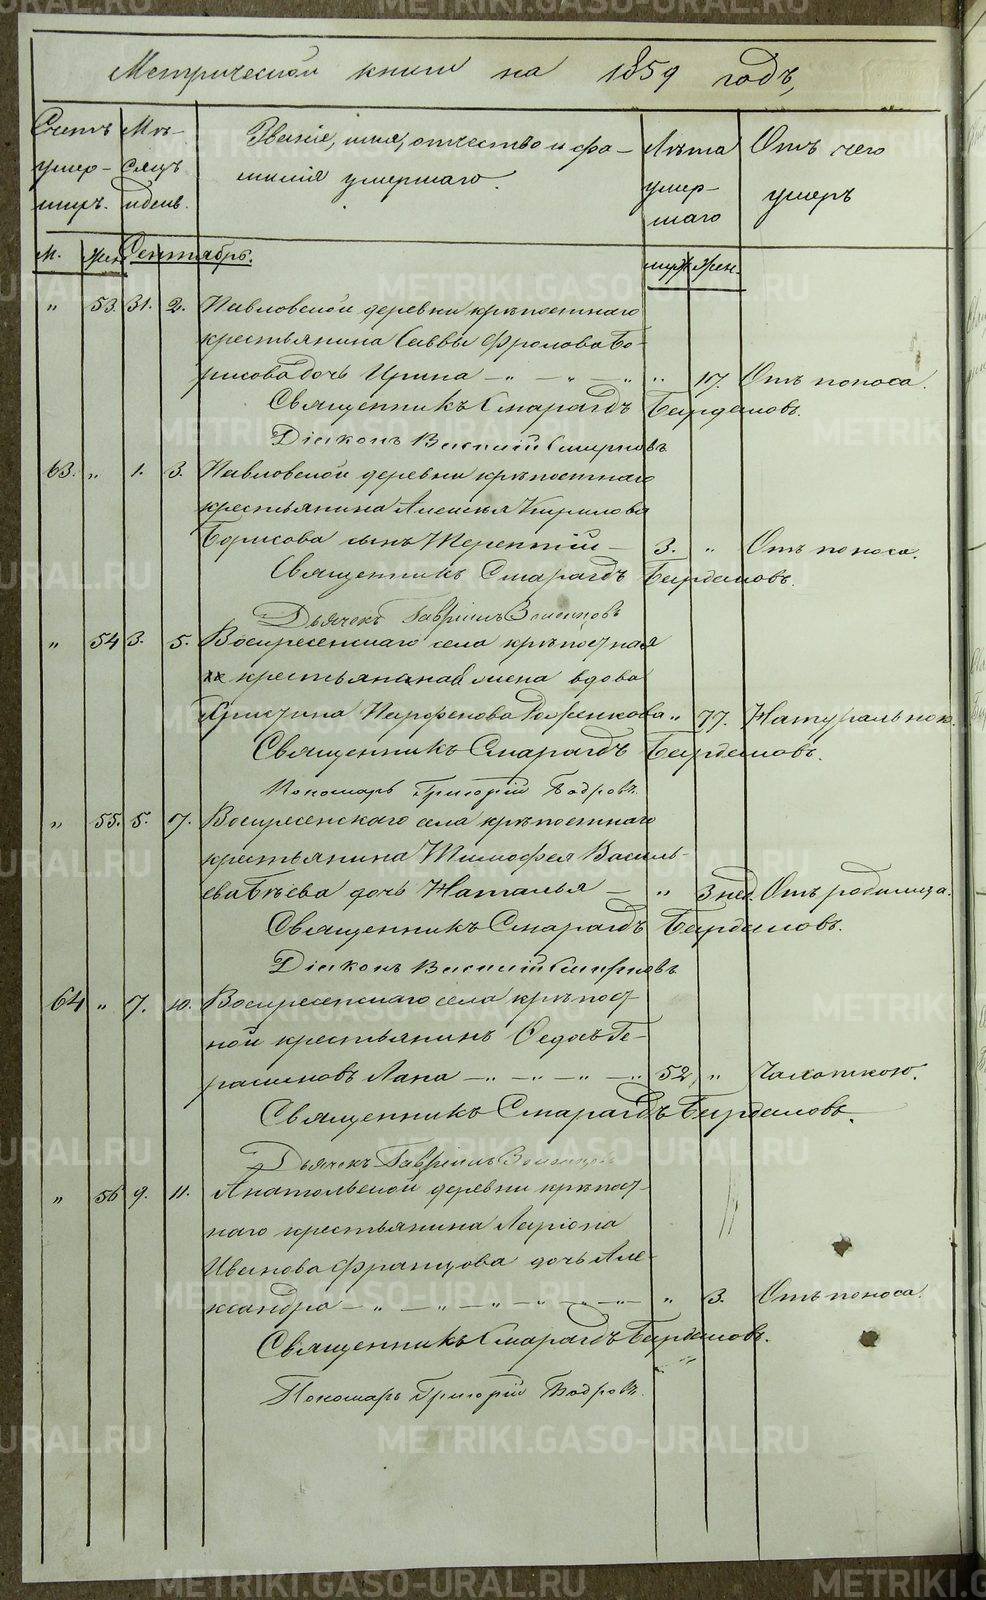 Метрической книги на 1859 годъ,
Счетъ умер-шихъ. Мѣ-сяцъ и день. Званіе, имя, отчество и фа-милія умершаго. Лѣта умер-шаго Отъ чего умеръ
М. Жен. Сентябрь. муж. Жен.
" 53. 31. 2. Павловской деревни крѣпостнаго
крестьянина Саввы Фролова Бо-
рисова дочь Ирина — " — " — " " 17. Отъ поноса.
Священникъ Смарагдъ Бирдамовъ.
Діаконъ Василій Смирновъ
63. " 1. 3. Павловской деревни крѣпостнаго
крестьянина Алексѣя Кирилова
Борисова сынъ Терентій — 3. " Отъ поноса.
Священникъ Смарагдъ Бирдамовъ.
Дьячекъ Гавріилъ
" 54 3. 5. Воскресенскаго села крѣпостная
крестьянская жена вдова
Христина Парфенова " 77. Натуральною.
Священникъ Смарагдъ Бирдамовъ.
Пономарь Григорій Бодровъ.
" 55. 5. 7. Воскресенскаго села крѣпостнаго
крестьянина Тимофея Василь-
ева Бѣева дочь Наталья — " 3 нед. Отъ родимца.
Священникъ Смарагдъ Бирдамовъ.
Діаконъ Василій Смирновъ
64 " 7. 10. Воскресенскаго села крѣпост-
ной крестьянинъ Ге-
расимовъ Лапа — " — " — " — " 52, " Чахоткою.
Священникъ Смарагдъ Бирдамовъ.
Дьячекъ Гавріилъ
" 56 9. 11. Анатольской деревни крѣпост-
наго крестьянина Ларіона
Иванова Францова дочь Але-
ксандра — " — " — " — " — " — " 3. Отъ поноса.
Священникъ Смарагдъ Бирдамовъ.
Пономарь Григорій Бодровъ.
METRIKI.GASO-URAL.RU